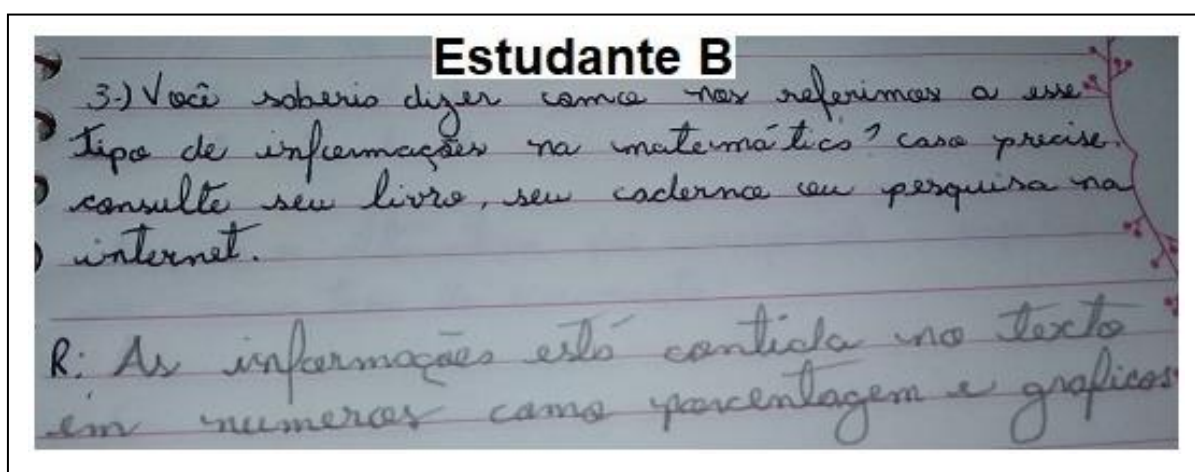 Estudante B
3-) Você saberia dizer como nos referimos a esse
tipo de informações na matemática? caso precise
consulte seu livro, seu caderno ou pesquisa na
internet.
R: As informações está contida no texto
em numeros como porcentagem e graficos